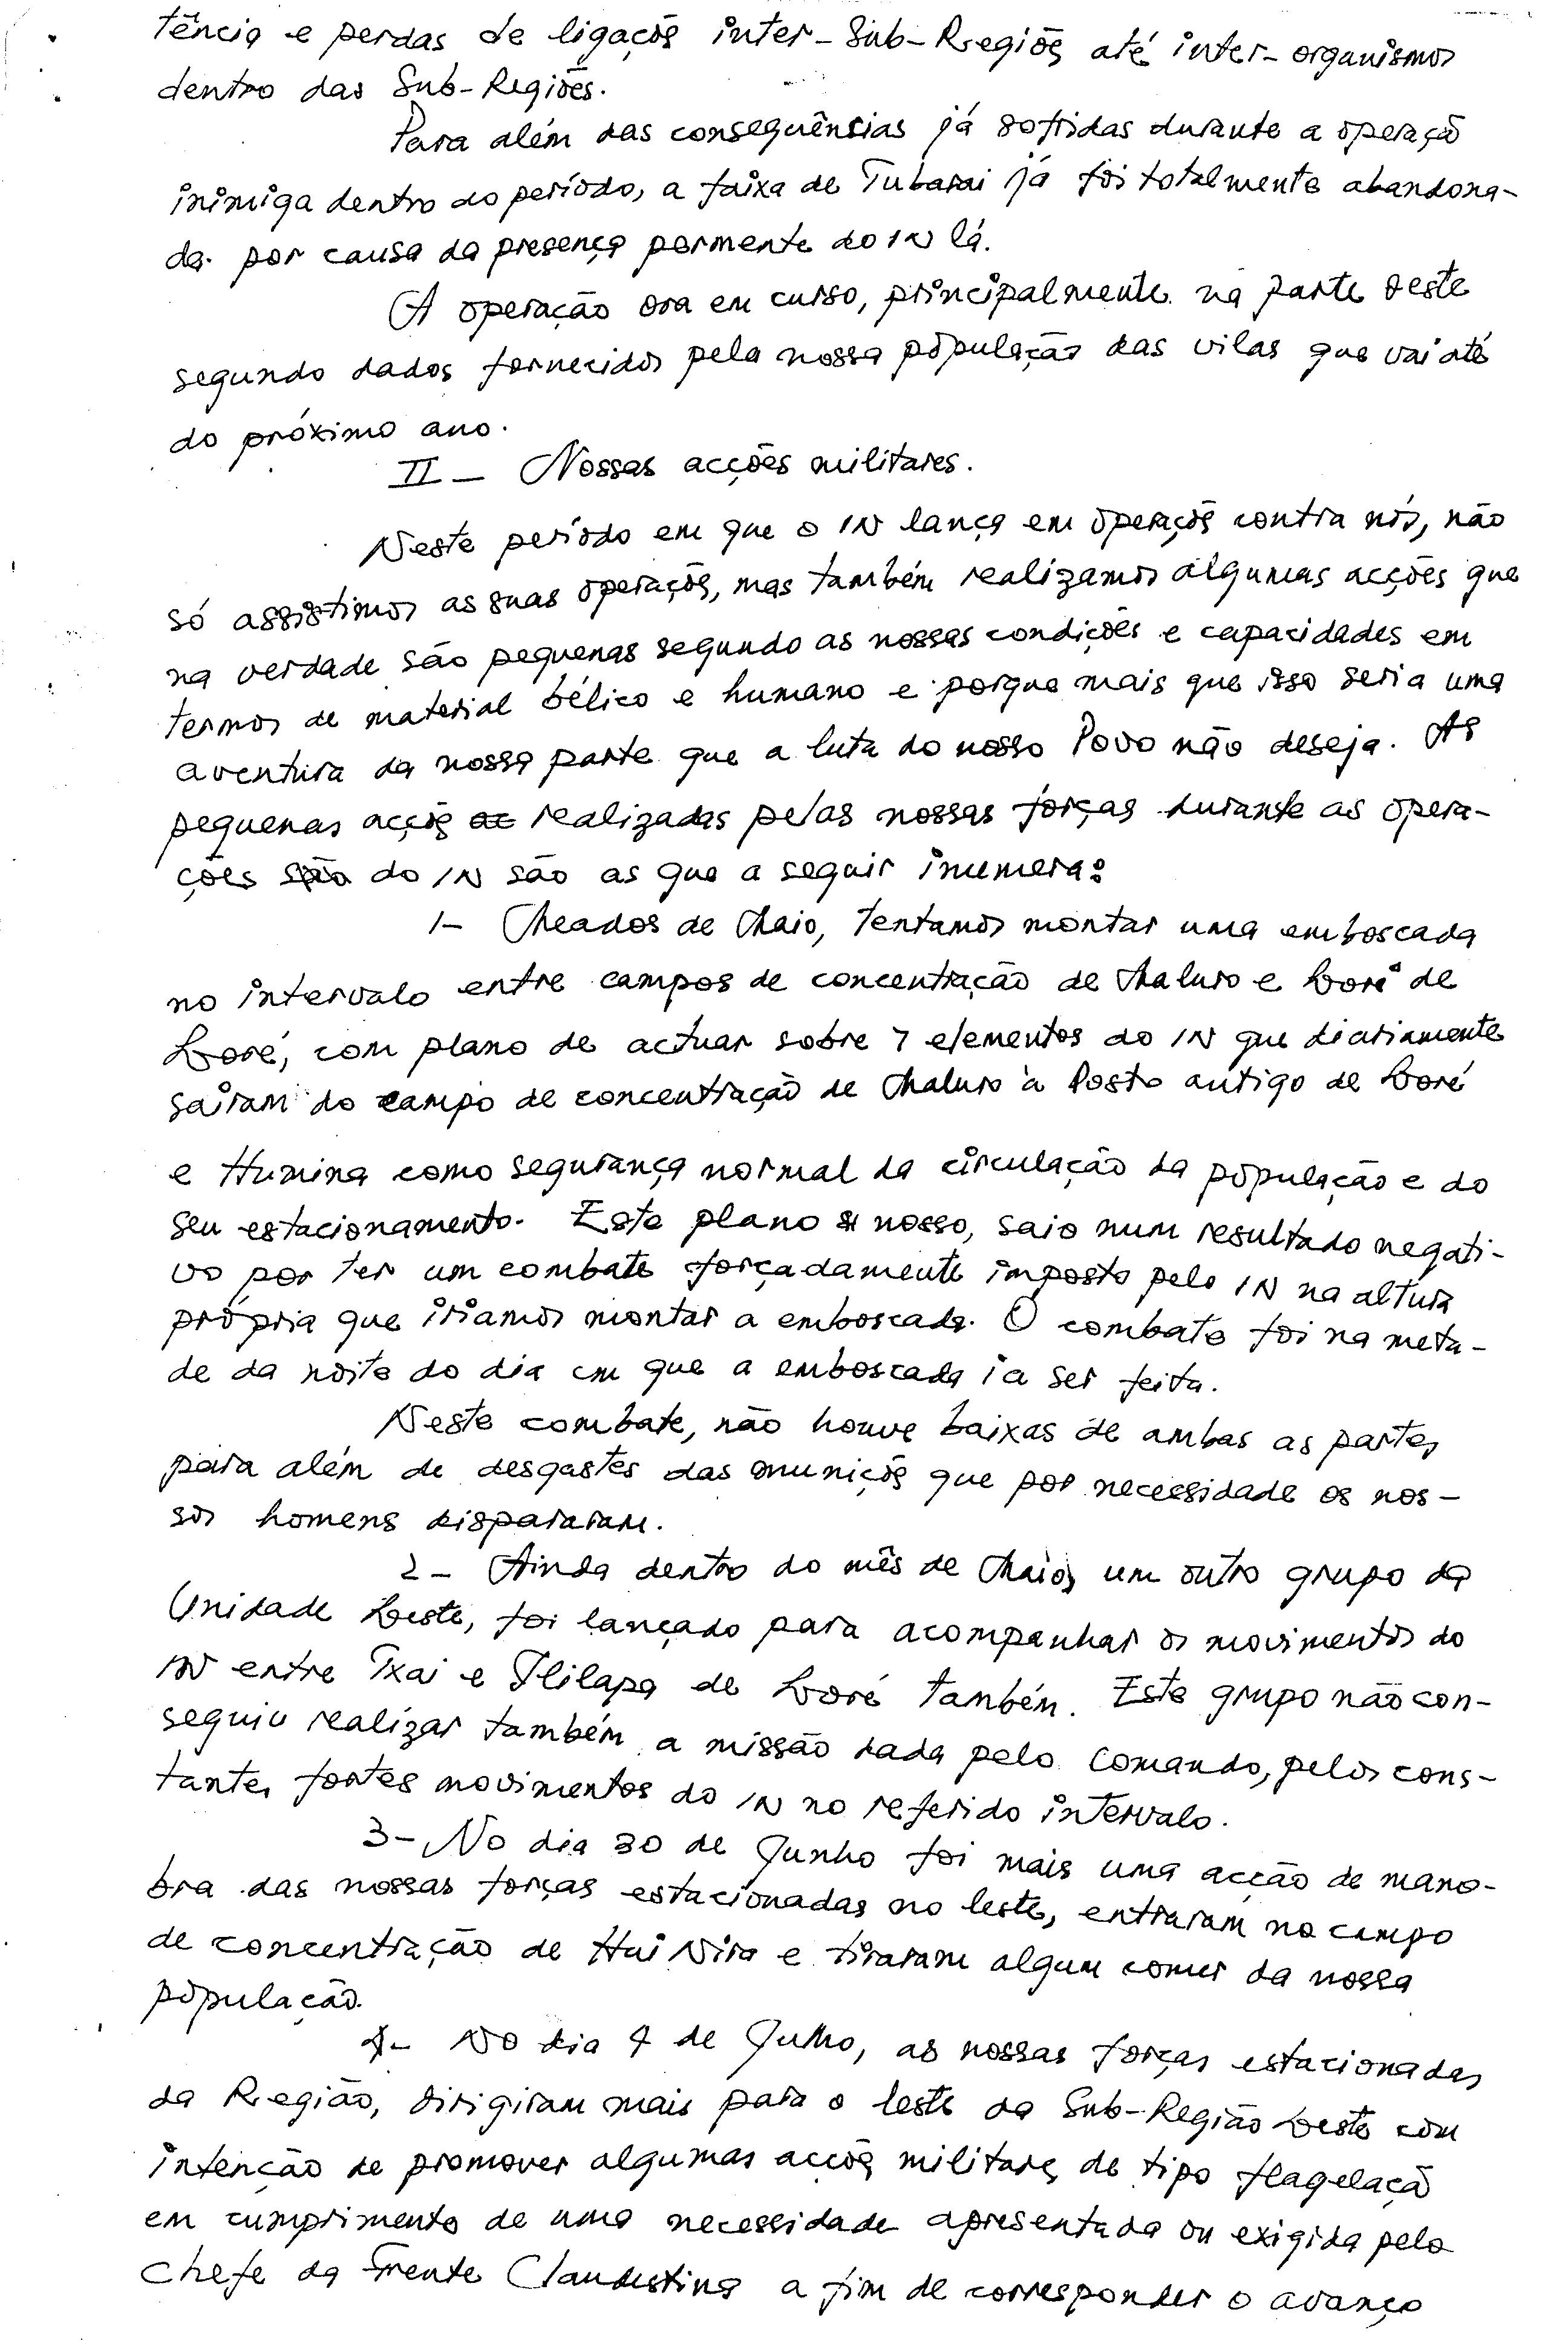 tência e perdas de ligaçõs inter-Sub-Regiões até inter-organismos
dentro das Sub-Regiões.
Para além das consequências já sofridas durante a operaçõ
inimiga dentro do período, a faixa de Tubarai já foi totalmente abandona-
da por causa da presença permente do IN lá.
A operação ora em curso, principalmente na parte oeste
segundo dados fornecidos pela nossa população das vilas que vai até
do próximo ano.
II - Nossas acções militares.
Neste período em que o IN lança em operaçõs contra nós, não
só assistimos as suas operaçõs, mas também realizamos algumas acções que
na verdade são pequenas segundo as nossas condições e capacidades em
termos de material bélico e humano e porque mais que isso seria uma
aventura da nossa parte que a luta do nosso Povo não deseja. As
pequenas acçõs realizadas pelas nossas forças durante as opera-
ções são do IN são as que a seguir inumera:
1- Meados de Maio, tentamos montar uma emboscada
no intervalo entre campos de concentração de Maluro e Loré de
Loré, com plano de actuar sobre 7 elementos do IN que diariamente
sairam do campo de concentração de Maluro à Posto antigo de Loré
e Humina como segurança normal da circulação da população e do
seu estacionamento. Este plano nosso, saio num resultado negati-
vo por ter um combate forçadamente imposto pelo IN na altura
própria que iriamos montar a emboscada. O combate foi na meta-
de da noite do dia em que a emboscada ia ser feita.
Neste combate, não houve baixas de ambas as partes
para além de desgastes das muniçõs que por necessidade os nos-
sos homens dispararam.
2- Ainda dentro do mês de Maio, um outro grupo da
Unidade Leste, foi lançado para acompanhar os movimentos do
IN entre Txai e Ililapa de Loré também. Este grupo não con-
seguiu realizar também a missão dada pelo Comando, pelos cons-
tantes fortes movimentos do IN no referido intervalo.
3- No dia 30 de Junho foi mais uma acção de mano-
bra das nossas forças estacionadas no leste, entraram no campo
de concentração de Hui Nira e tiraram algum comer da nossa
população.
4- No dia 4 de Julho, as nossas forças estacionadas
da Região, dirigiram mais para o leste da Sub-Região Leste com
intenção de promover algumas acçõs militares de tipo flagelaçã
em cumprimento de uma necessidade apresentada ou exigida pelo
Chefe da Frente Clandestina a fim de corresponder o avanço